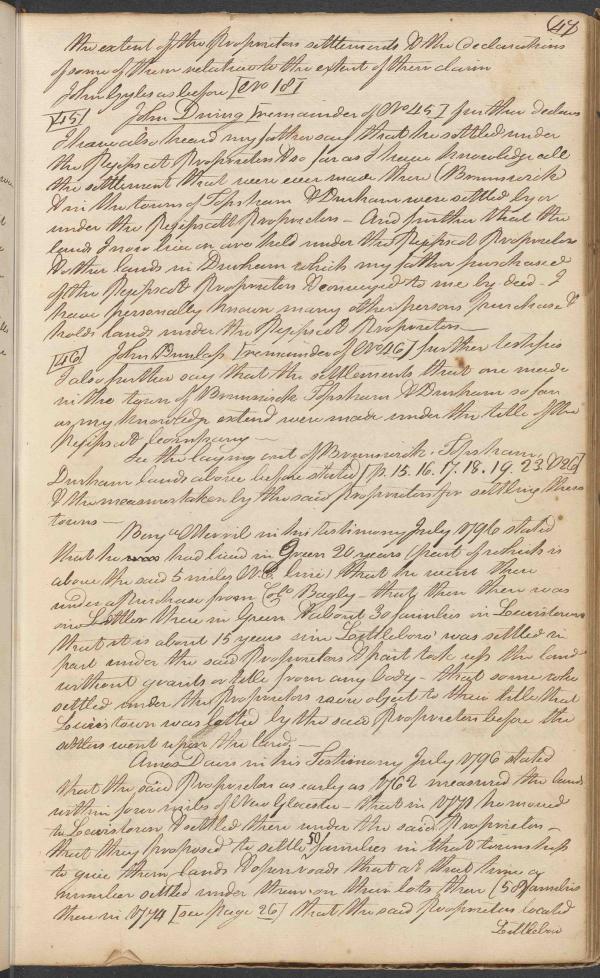 47
the extent of the Proprietors settlements & the declarations
of some of them relative to the extent of their claim
John Gyles as before [No 18]
[45] John During [remainder of No 45] further declares
I have also heard my father say that he settled under
the Pejipscott Proprietors & so far as I have knowledge all
the settlement that were ever made there (Brunswick
& in the towns of Topsham & Durham were settled by or
under the Pejipscott Proprietors - And further that the
lands I now live on are held under the Pejipscott Proprietors
& other lands in Durham which my father purchased
of the Pejipscott Proprietors & conveyed to me by deed - I
have personally known many other persons purchase &
holds lands under the Pejipscott Proprietors -
[46] John Dunlap [remainder of No 46] further testifies
I also further say that the settlements that are made
in the town of Brunswick Topsham & Durham so far
as my knowledge extend were made under the title of the
Pejipscott Company -
See the laying out of Brunswick, Topsham,
Durham lands above before stated [p. 15. 16. 17. 18. 19. 23. & 26]
& the measures taken by the said Proprietors for settling these
towns -
Benja Merril in his testimony July 1796 stated
that he had lived in Green 20 years (part of which is
above the said 5 miles N.E. line) that he went there
under a Purchase from Colo Bagley - that then there was
one Settler there in Green & about 30 families in Lewistown
that it is about 15 years since Littleboro' was settled in
part under the said Proprietors & part took up the land
without grants or title from any body - that some who
settled under the Proprietors now object to their title that
Lewistown was lotted by the said Proprietors before the
settlers went upon the land. -
Amos Davis in his Testimony July 1796 stated
that the said Proprietors as early as 1762 measured the land
within four miles of New Glocester - that in 1770 he moved
to Lewistown & settled there under the said Proprietors -
that they proposed to settle 50 families in that township
to give them lands & open roads that at that time a
number settled under them on their lots there (58 families
there in 1774 [see page 26] that the said Proprietors located
Littleboro